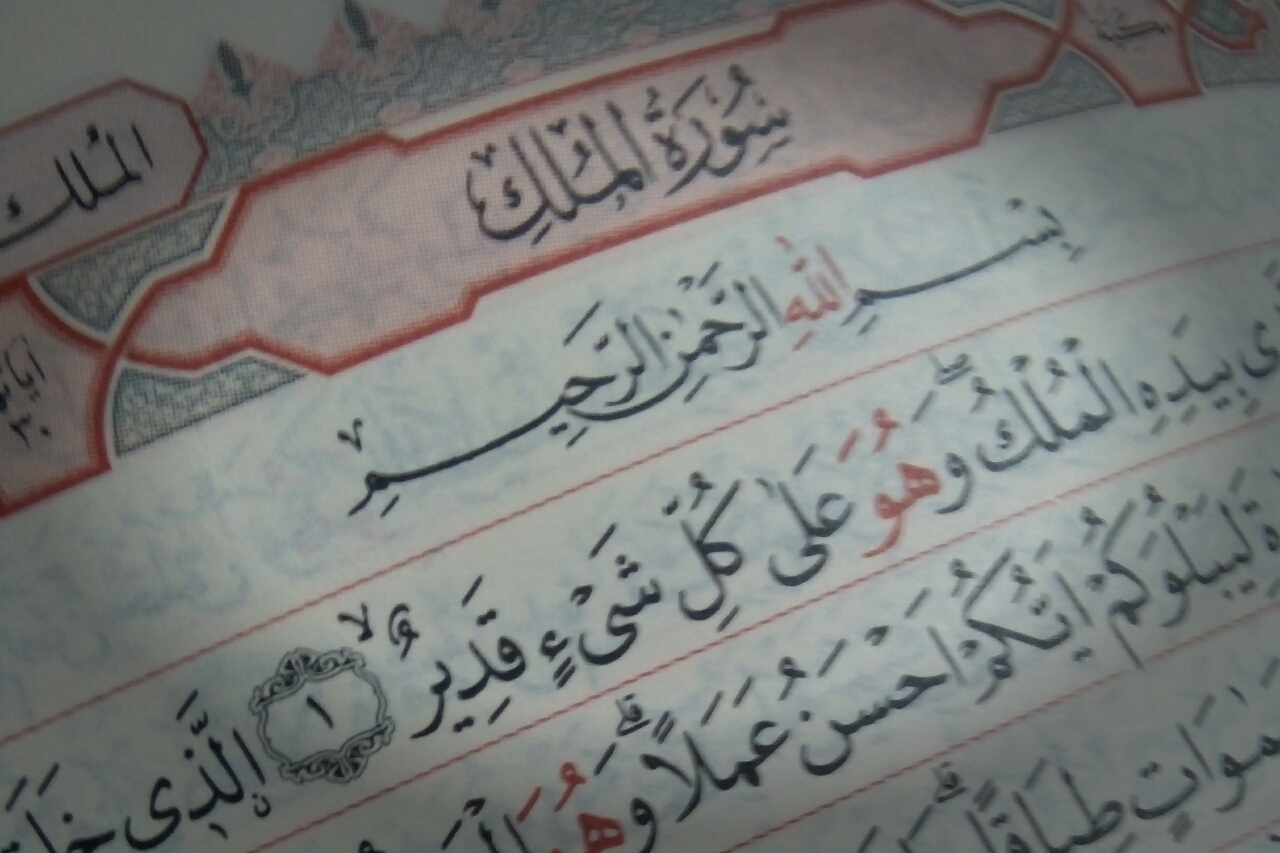 الملك
سُورَةُ الْمُلْكِ
اٰيَاتُهَا
٣٠
بِسْمِ اللّٰهِ الرَّحْمٰنِ الرَّحِيمِ
بِيَدِهِ الْمُلْكُ وَهُوَ عَلٰى كُلِّ شَىْءٍ قَدِيرٌۙ ﴿١﴾ اِۨلَّذِى
لِيَبْلُوَكُمْ اَيُّكُمْ اَحْسَنُ عَمَلًاۜ وَهُوَ
طِبَاقًاۜ